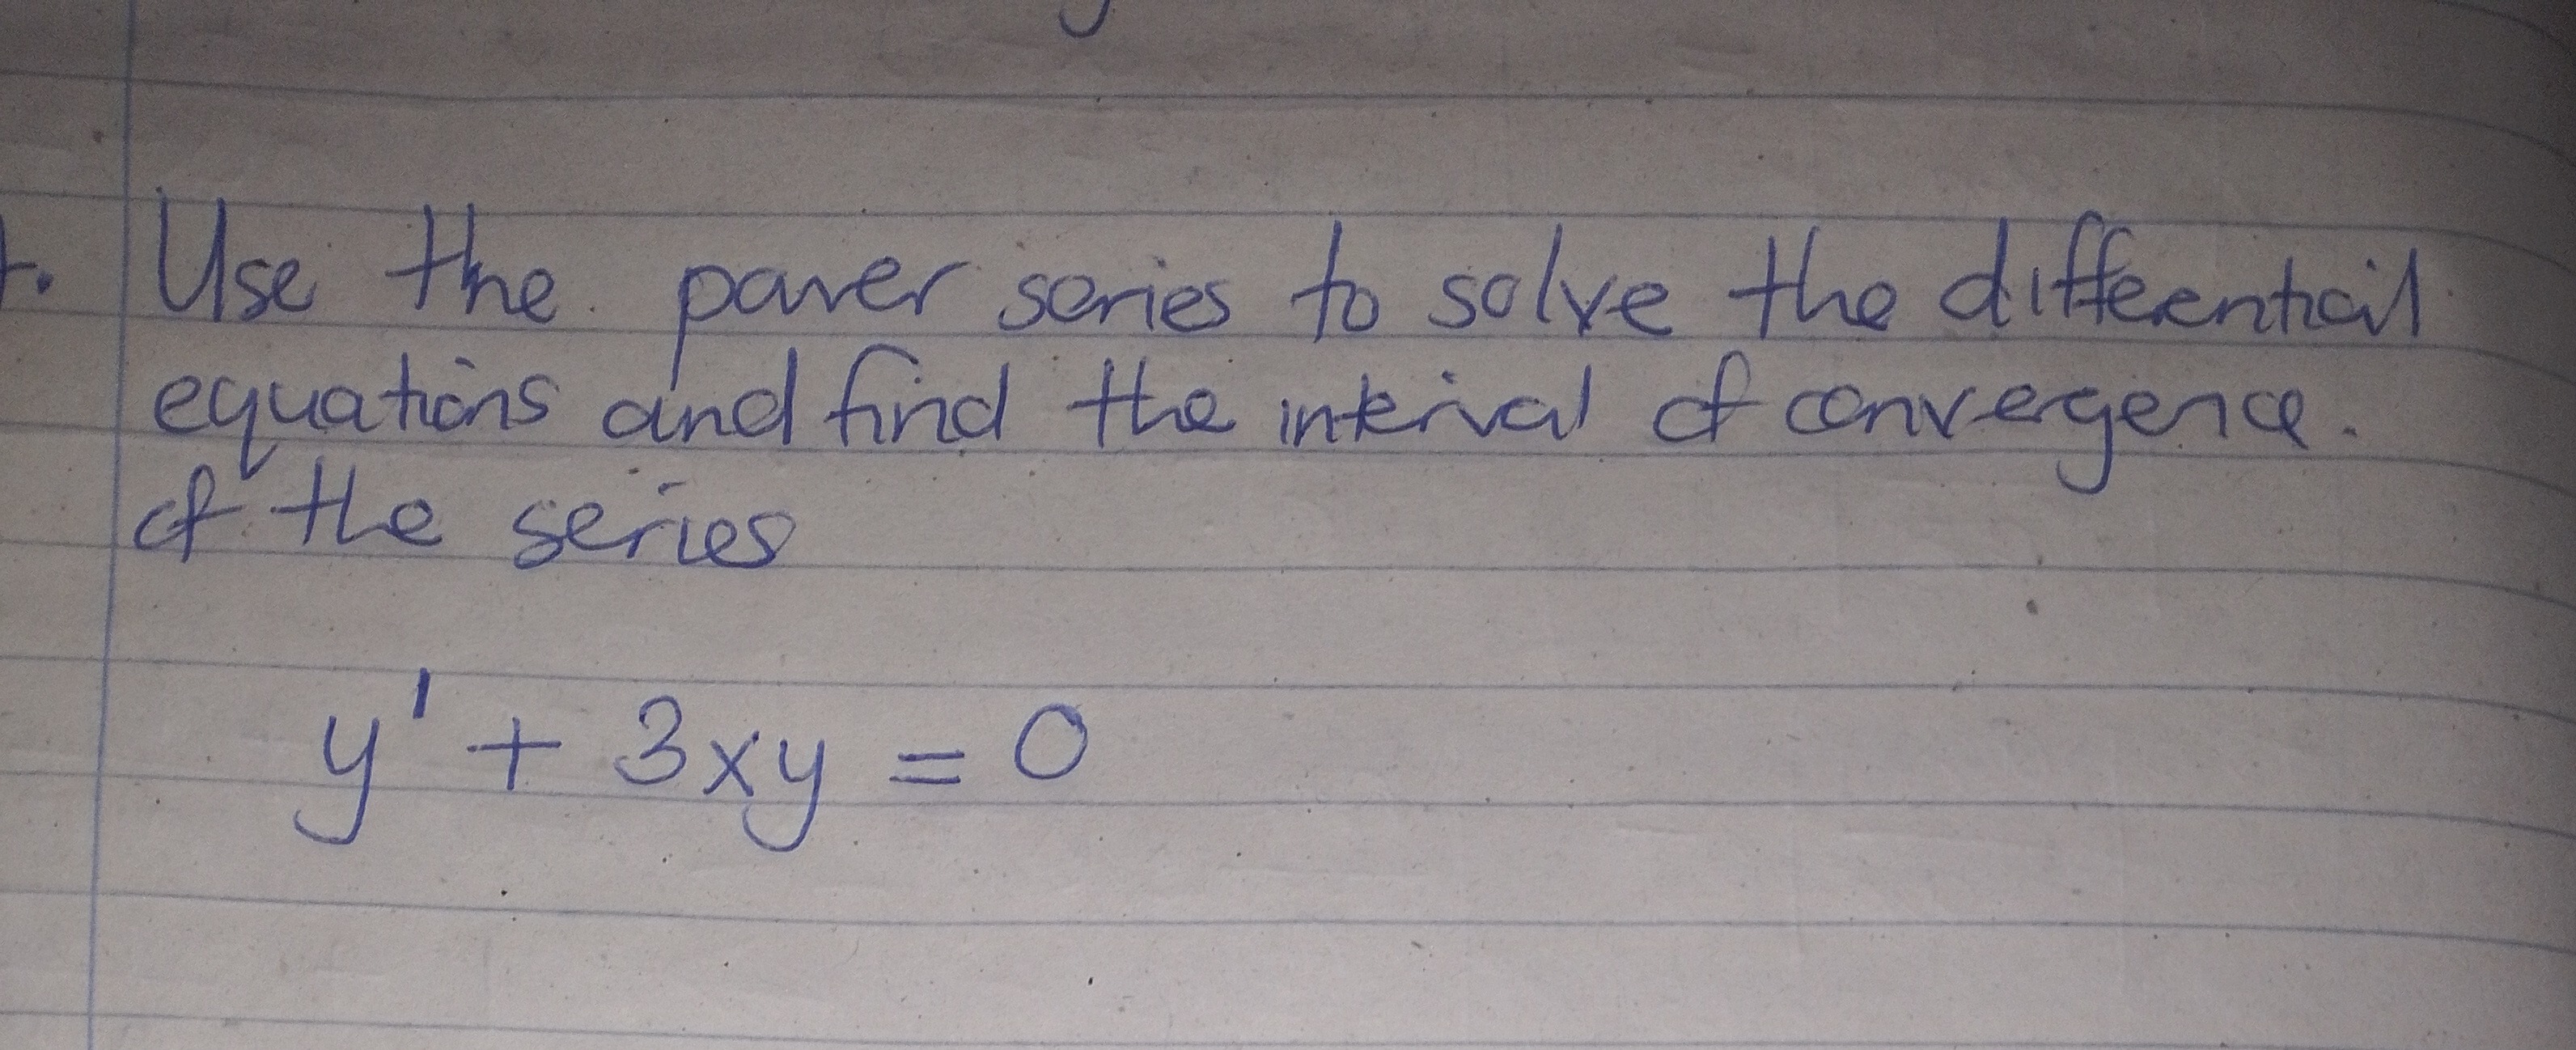 Use the power series to solve the diffeential
equations and find the interval of convergence.
of the series
y' + 3xy = 0